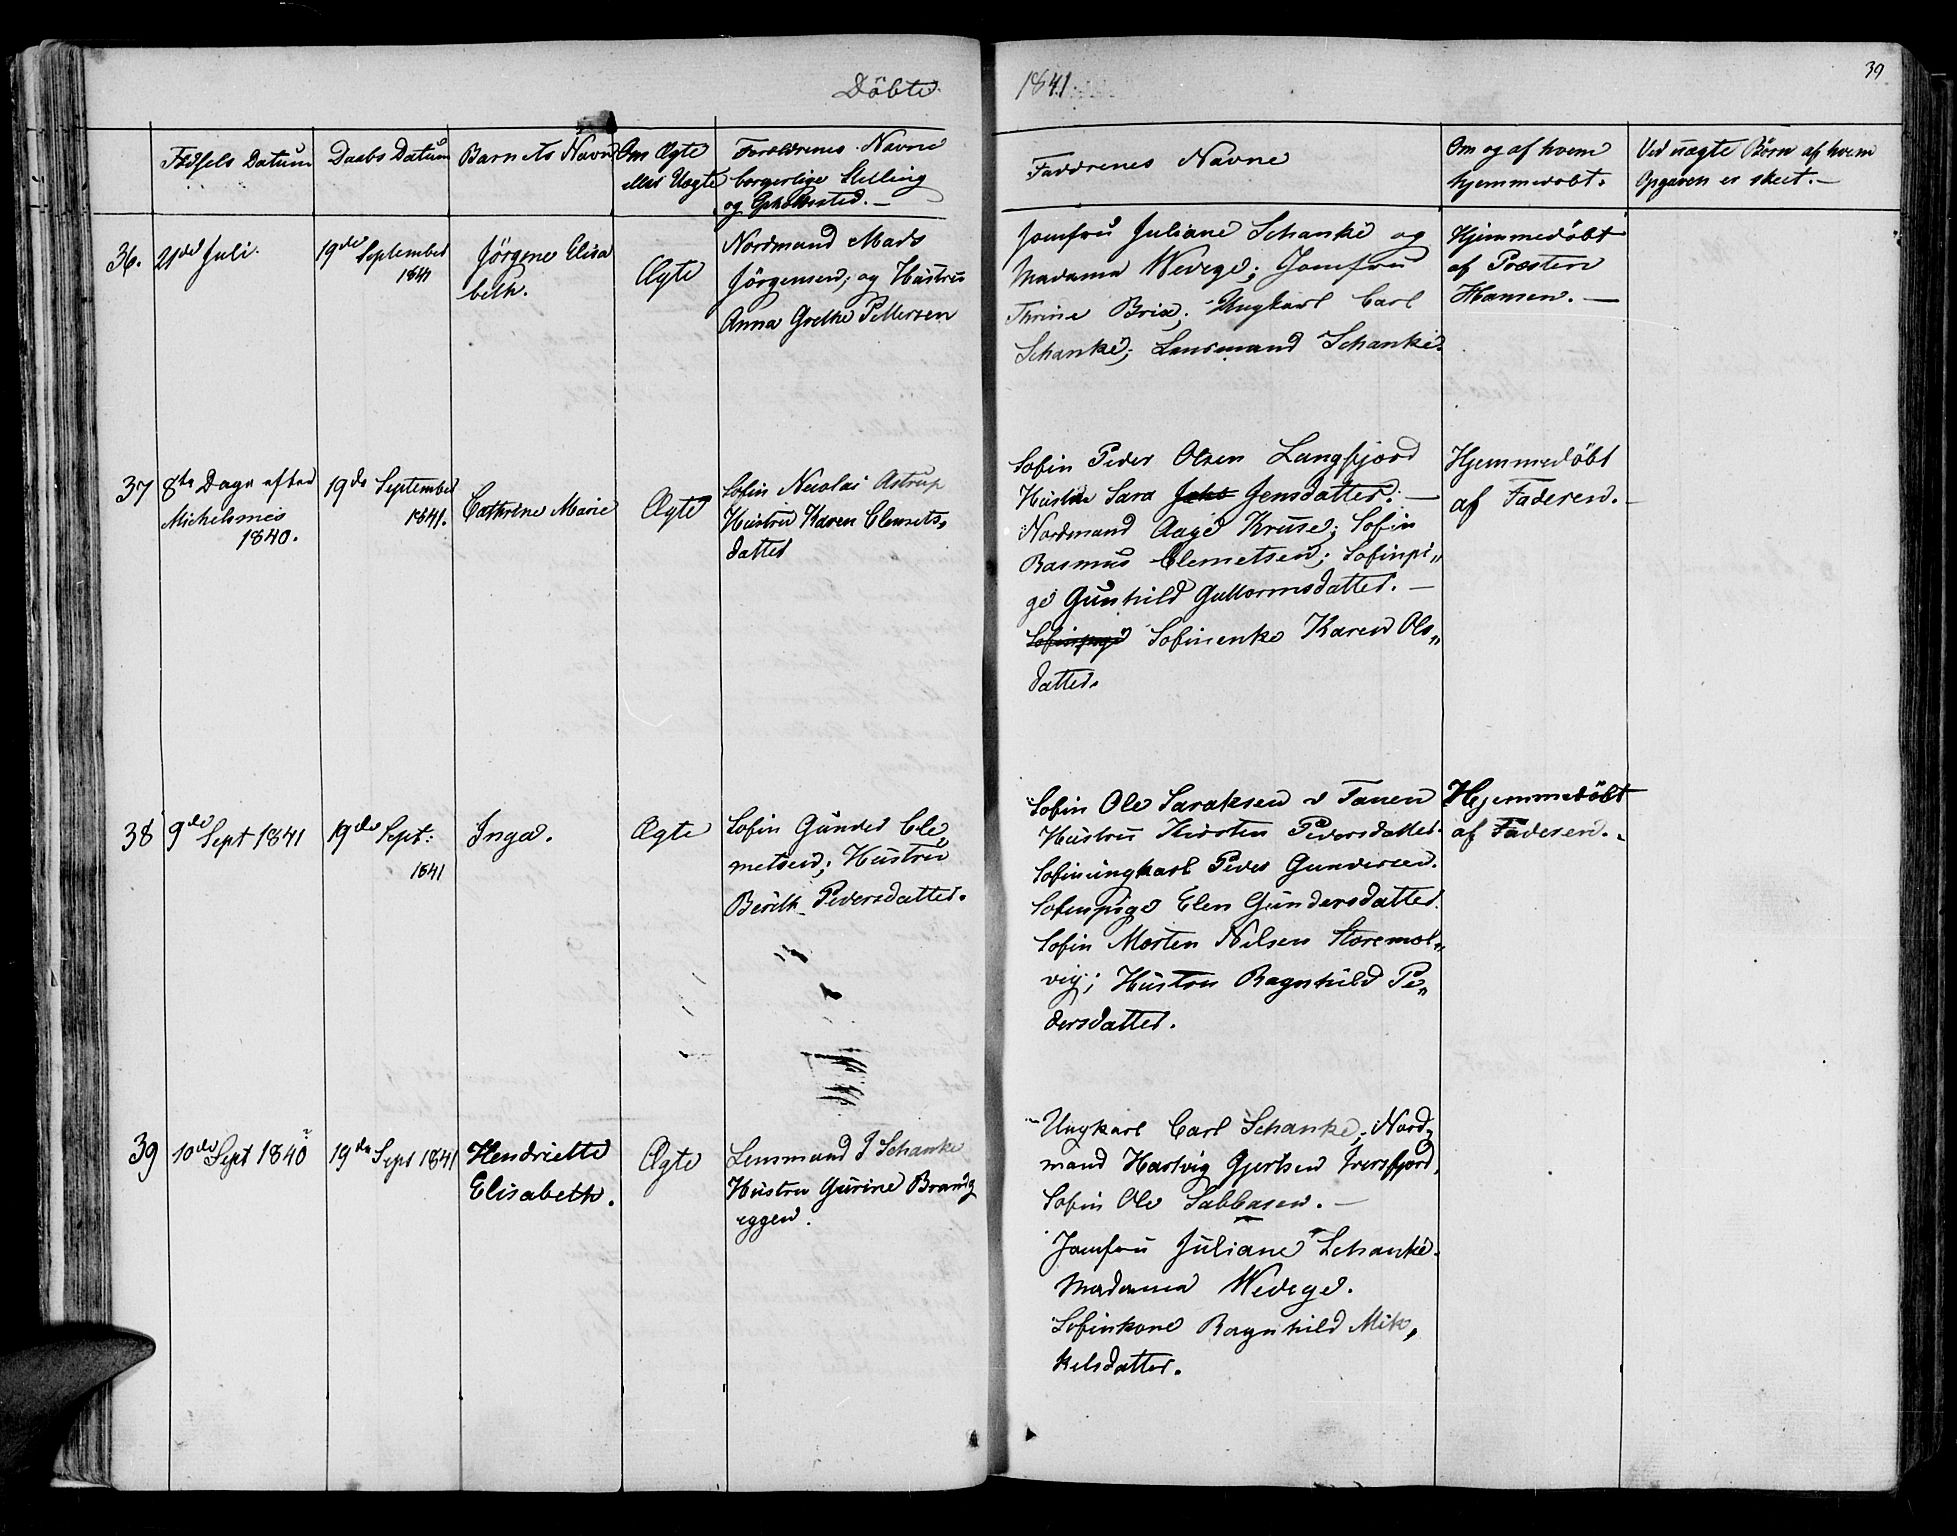 Döbte
1841
39
Fødsels Datum
Daabs Datum
Barnets Navn
Om Ægte
eller Uægte
Forældrenes Navne
borgerlige Stilling
og Opholdssted.
Faddrenes Navne
Om og af hvem
hjemmedøbt.
Ved uægte Børn af hvem
Opgaven er skeet.
36.
21de Juli.
19de September
1841
Jörgene Elisa
beth.
Ægte
Nordmand Mads
Jörgensen; og Hustru
Anna Grethe Pettersen
Jomfru Juliane Schanke og
Madama Wedege; Jomfru
Thrine Brix; Ungkarl Carl
Schanke; Lensmand Schanke.
Hjemmedöbt
af Præsten
Hansen.
37
8te Dage efter
Michelsmes
1840.
19de September
1841.
Cathrine Marie
Ægte
Sofin Necolai Astrup
Hustru Karen Clemets-
datter
Sofin Peder Olsen Langfjord
Hustru Sara Jensdatter;
Nordmand Aage Kruse; Sofin
Rasmus Clemetsen; Sofinpi„
ge Gunhild Guttormsdatter.
Sofinpige Sofinenke Karen Ols„
datter.
Hjemmedöbt
af Faderen.
38
9de Sept 1841
19de Sept:
1841
Inga.
Ægte
Sofin Gunder Cle
metsen; Hustru
Berith Pedersdatter.
Sofin Ole Saraksen v Tanen
Hustru Kirsten Pedersdatter.
Sofinungkarl Peder Gundersen.
Sofinpige Elen Gundersdatter.
Sofin Morten Nilsen Storemol„
vig; Hustru Ragnhild Pe„
dersdatter.
Hjemmedöbt
af Faderen.
39
10de Sept 1840
19de Sept 1841
Hendriette
Elisabeth.
Ægte
Lensmand J Schanke
Hustru Gurine Brand
eggen.
Ungkarl Carl Schanke; Nord
mand Hartvig Gjertsen
Sofin Ole Sabbasen.
Jomfru Juliane Schanke.
Madama Wedege.
Sofinkone Ragnhild Mik„
kelsdatter.